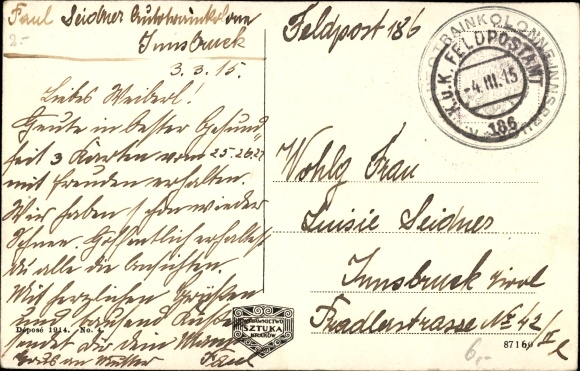 Paul Seidner Autotrainkolone
Innsbruck
3.3.15.
Liebes Weiberl!
Heute in bester Gesund,
heit 3 Karten vom 25.26.27
mit freuden erhalten.
Wir haben schon wieder
Schnee. Hoffentlich erhaltest
du alle die Ansichten.
Mit herzlichen Grüßen
und tausend Küssen
sendet dir dein Mann
Gruss an Mutter Paul
2.-
Feldpost 186
AUTOTRAINKOLONNE INNSBRUCK
K.u.K. FELDPOSTAMT
-4.III.15
186
Wohlg Frau
Luisie Seidner
Innsbruck Tirol
Pradlerstrasse Nr 42/
II
6,-
Déposé 1914. No. 4.
WYDAWNICTWO
SZTUKA
KRAKÓW
8716